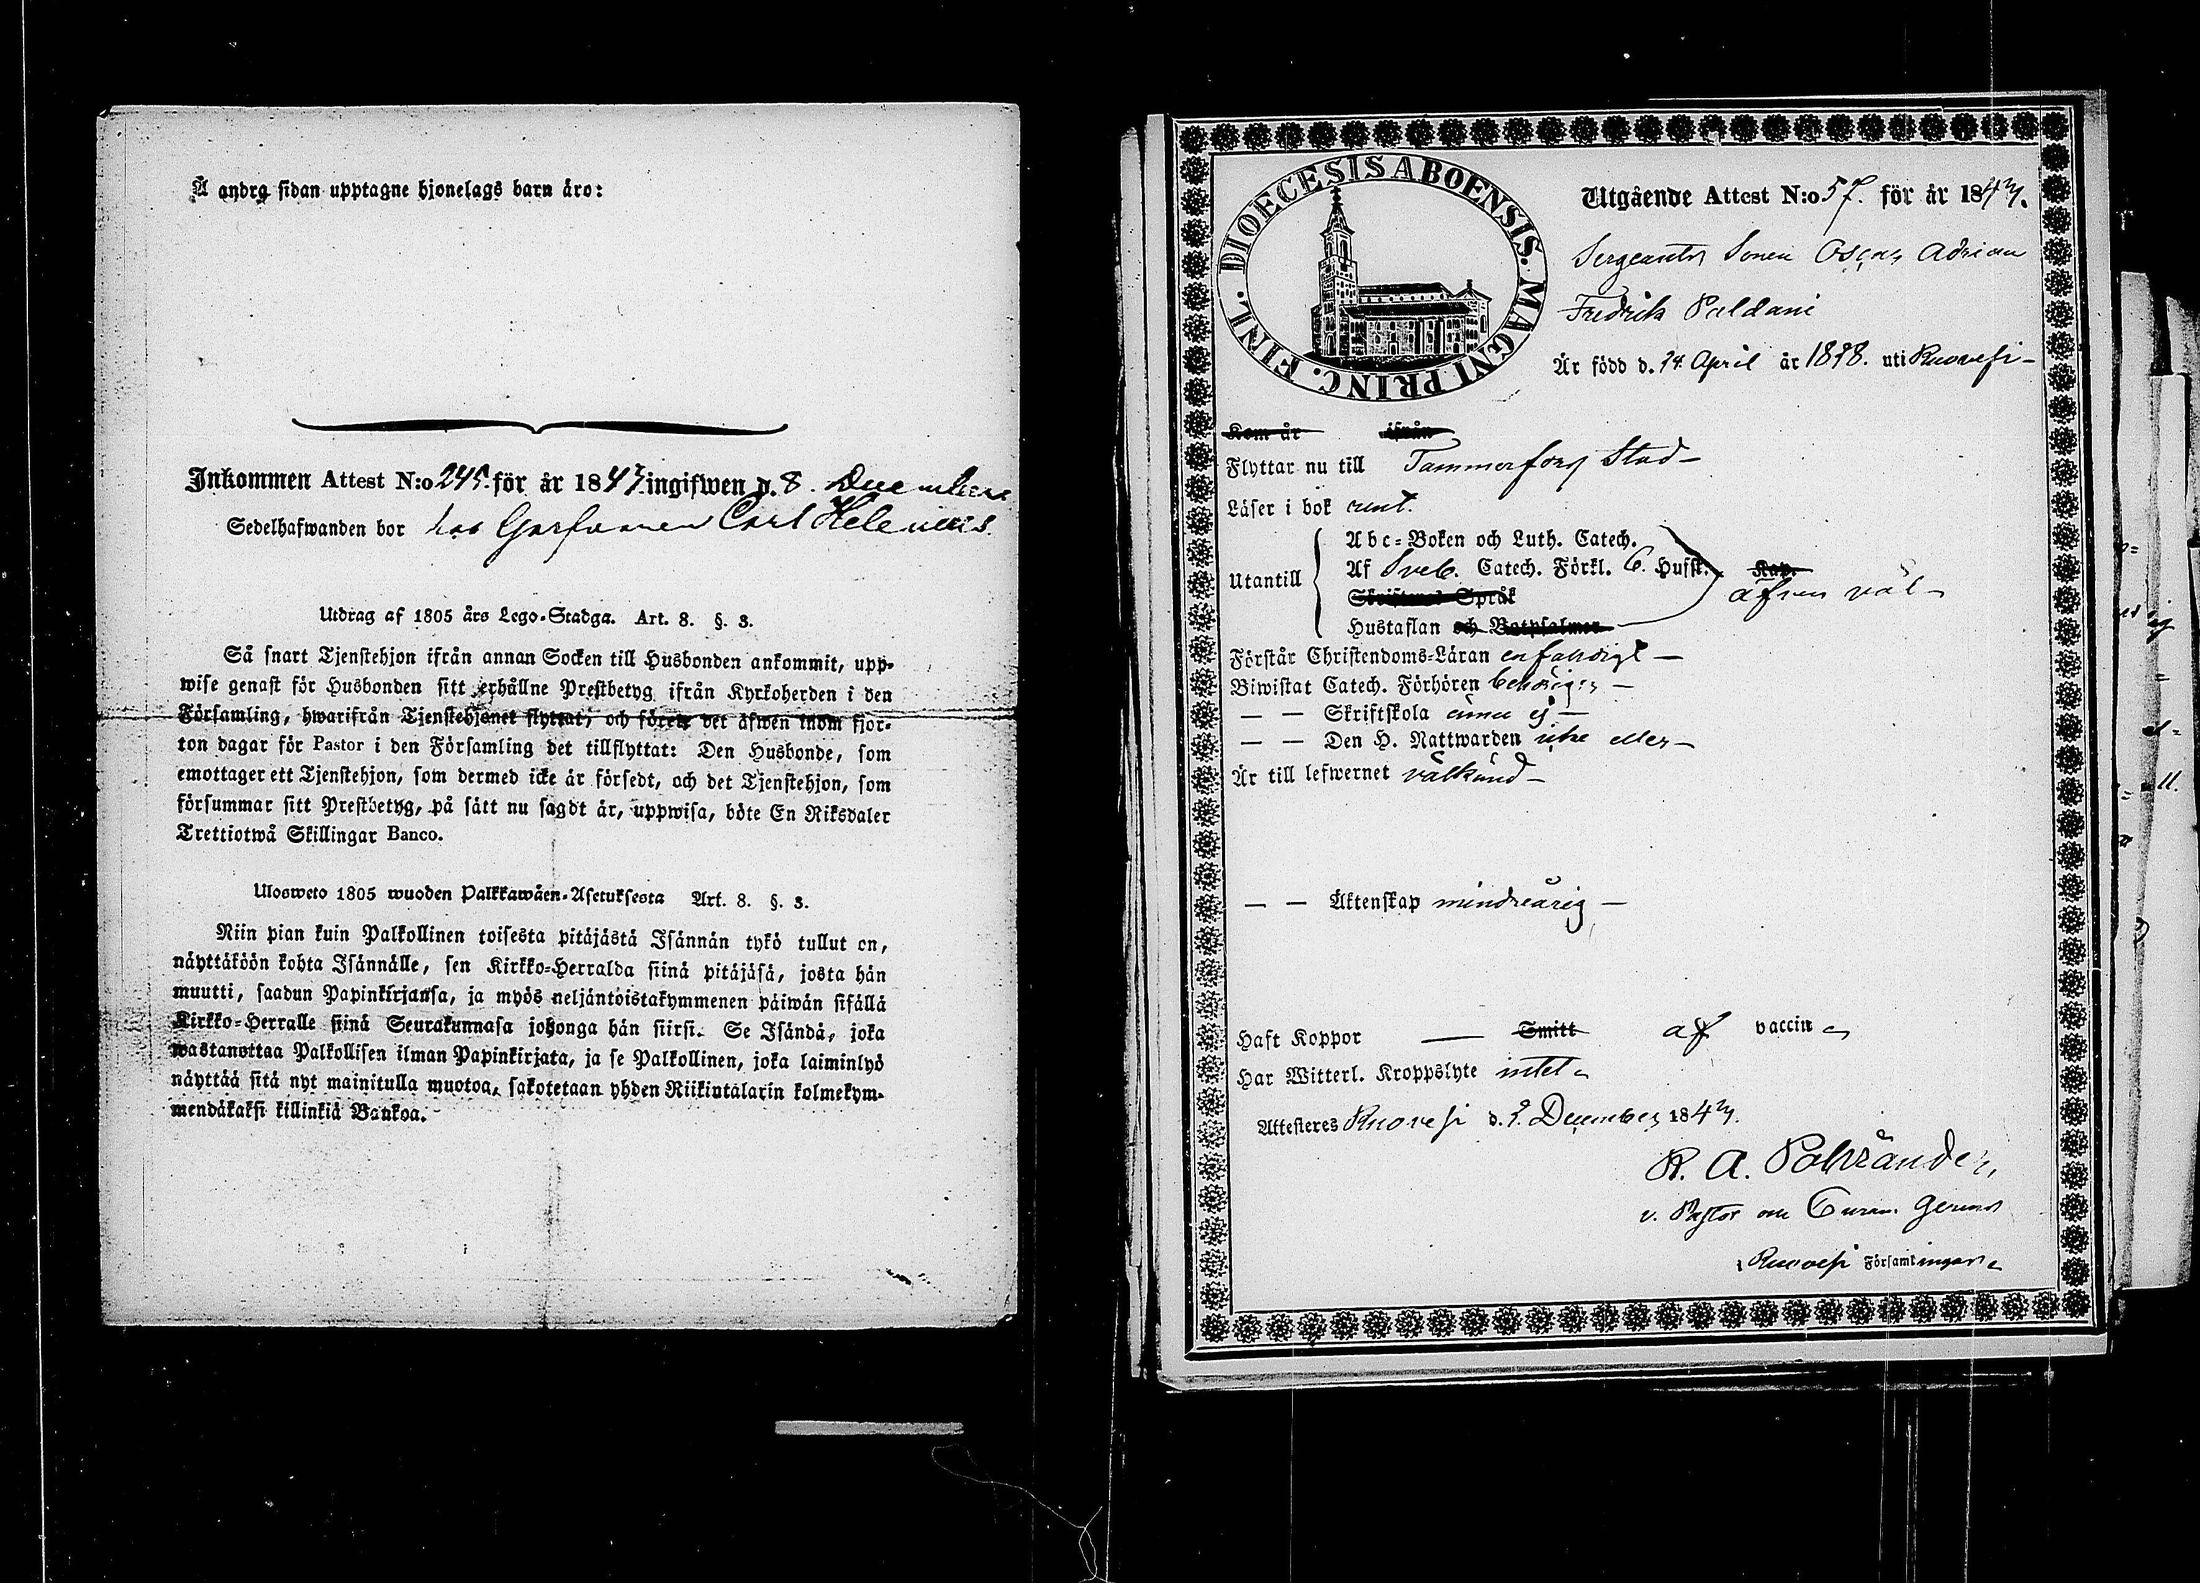 Å andra sidan upptagne hjonelags barn äro:
Inkommen Attest N:o 245. för år 1847 ingifwen d. 8. December
Sedelhafwanden bor hos Garfvaren Carl Helenius.
Utdrag af 1805 års Lego-Stadga. Art. 8. §. 3.
Så snart Tjenstehjon ifrån annan Socken till Husbonden ankommit, upp-
wise genast för Husbonden sitt erhållne Prestbetyg ifrån Kyrkoherden i den
Församling, hwarifrån Tjenstehjonet flyttat, och förete det äfwen inom fjor-
ton dagar för Pastor i den Församling det tillflyttat: Den Husbonde, som
emottager ett Tjenstehjon, som dermed icke är försedt, och det Tjenstehjon, som
försummar sitt Prestbetyg, på sätt nu sagdt är, uppwisa, böte En Riksdaler
Trettiotwå Skillingar Banco.
Ulosweto 1805 wuoden Palkkawäen-Asetuksesta Art. 8. §. 3.
Niin pian kuin Palkollinen toisesta pitäjästä Isännän tykö tullut on,
näyttäköön kohta Isännälle, sen Kirkko-Herralda siinä pitäjäsä, josta hän
muutti, saadun Papinkirjansa, ja myös neljäntoistakymmenen päiwän sisällä
Kirkko-Herralle siinä Seurakunnasa johonga hän siirsi. Se Isändä, joka
wastanottaa Palkollisen ilman Papinkirjata, ja se Palkollinen, joka laiminlyö
näyttää sitä nyt mainitulla muotoa, sakotetaan yhden Riikintalarin kolmekym-
mendäkaksi killinkiä Bankoa.
DIOECESIS ABOENSIS. MAGNI PRINC. FINL.
Utgående Attest N:o 57. för år 1847.
Sergeants Sonen Oscar Adrian
Fredrik Paldani
Är född d. 24 April år 18 8. uti Ruovesi
Kom år ifrån
Flyttar nu till Tammerfors Stad
Läser i bok rent.
Abc-Boken och Luth. Catech.
Utantill Af Sveb. Catech. Förkl. 6. Hufst. Kap.
äfven väl
Skriftenes Språk
Hustaflan och Botpsalmer
Förstår Christendoms-Läran enfaldigt
Biwistat Catech. Förhören behörigen
— — Skriftskola ännu ej
— — Den H. Nattwarden icke eller
Är till lefwernet välkänd
— — Äktenskap minderårig
Haft Koppor — Smitt af vaccin
Har Witterl. Kroppslyte intet
Attesteres Ruovesi d. 2. December 1847.
R. A.
v. Pastor
Ruovesi Församlingar